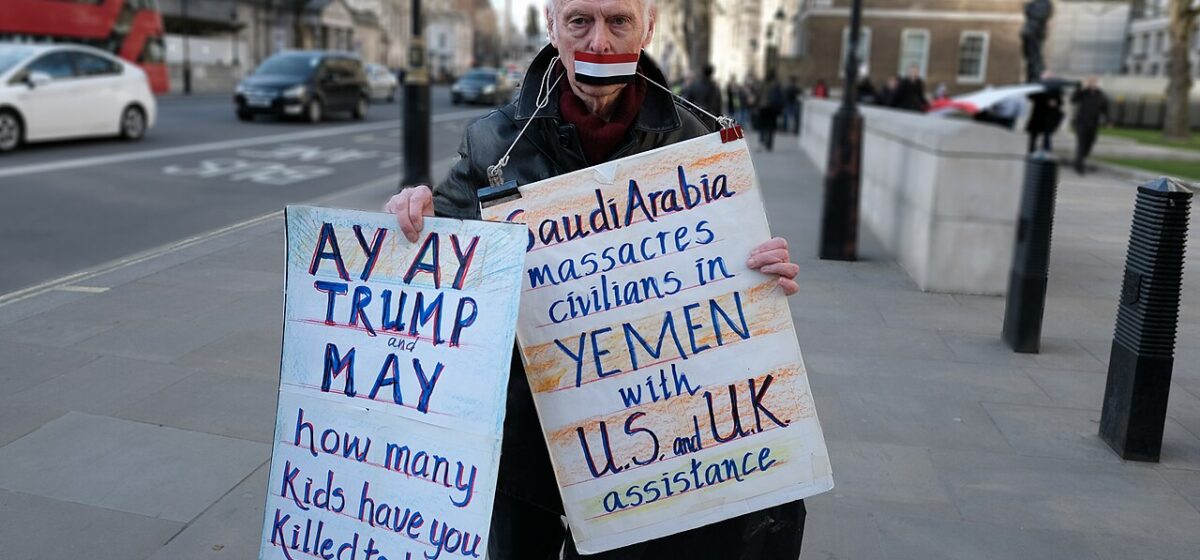 AY AY
TRUMP
and
MAY
how many
Kids have you
Killed
Saudi Arabia
massacres
civilians in
YEMEN
with
U.S. and U.K.
assistance